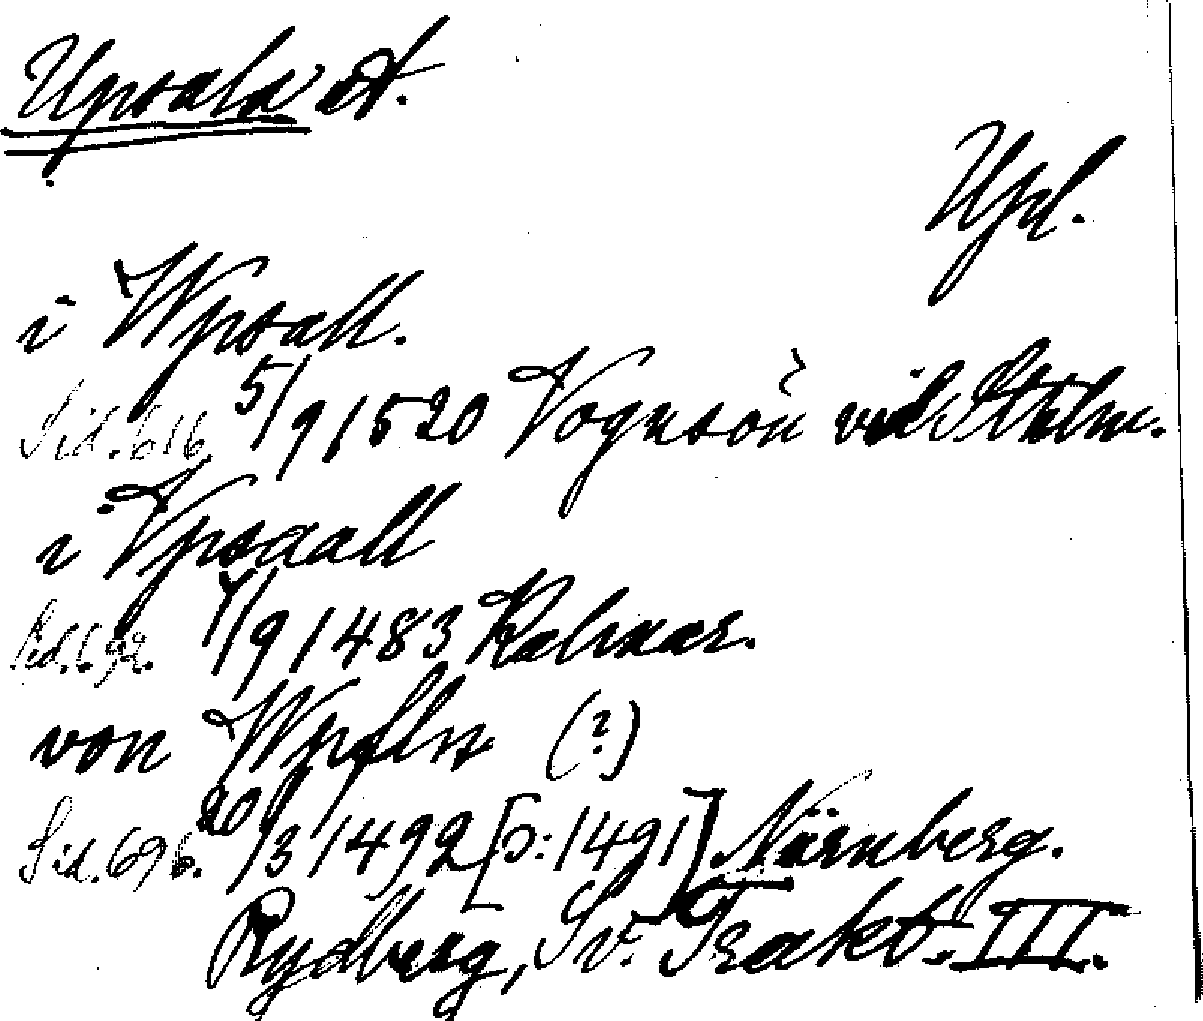 Upsala st.
Upl.
i Wpsall.
Sid. 616 5/9 1520 Vognsön vid Sthlm.
i Vpsaall
Sid. 692. 7/9 1483 Kalmar.
von Wpsln (?)
Sid. 696. 20/3 1492 [ɔ: 1491] Nürnberg.
Rydberg, Sv. Trakt. III.